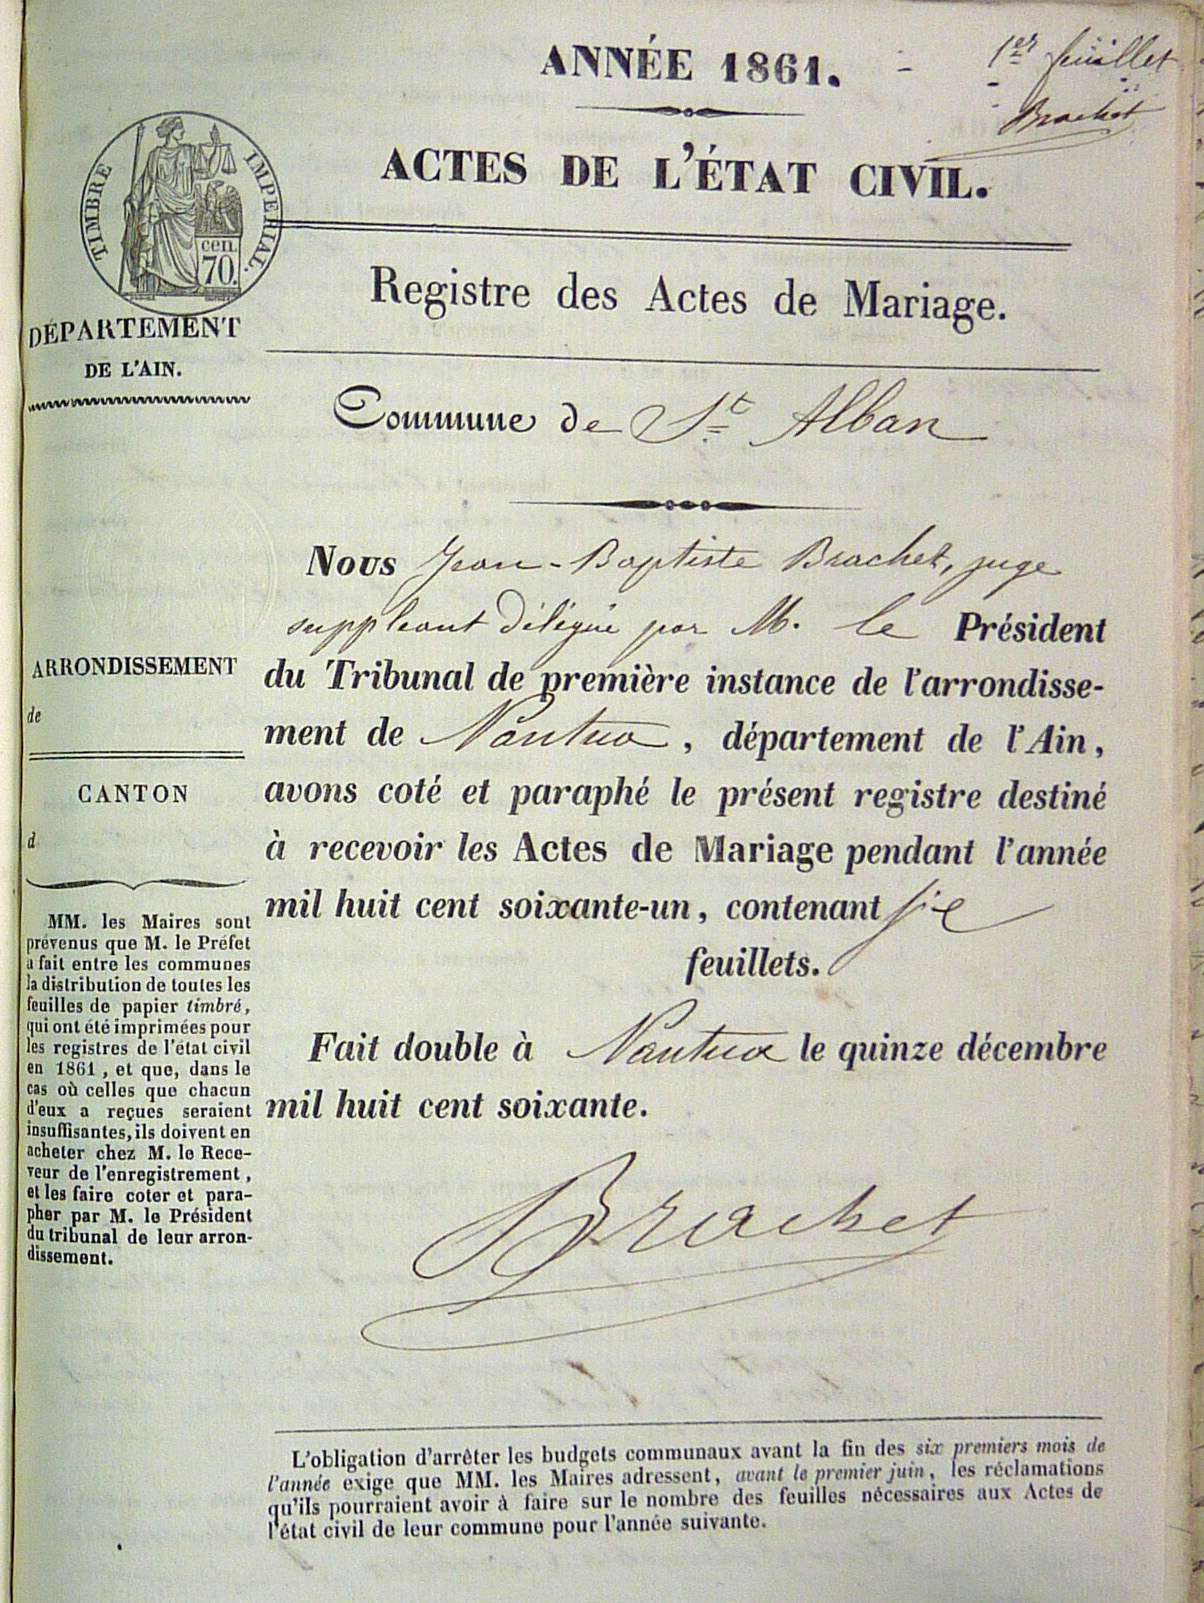 ANNÉE 1861.
1er feuillet
Brachet
ACTES DE L'ÉTAT CIVIL.
TIMBRE IMPERIAL.
cen.
70.
Registre des Actes de Mariage.
DÉPARTEMENT
DE L'AIN.
Commune de St Alban
Nous Jean-Baptiste Brachet, juge
suppléant délégué par M. le Président
du Tribunal de première instance de l'arrondisse-
ment de Nantua, département de l'Ain,
avons coté et paraphé le présent registre destiné
à recevoir les Actes de Mariage pendant l'année
mil huit cent soixante-un, contenant six
feuillets.
Fait double à Nantua le quinze décembre
mil huit cent soixante.
Brachet
ARRONDISSEMENT
de
CANTON
d
MM. les Maires sont
prévenus que M. le Préfet
a fait entre les communes
la distribution de toutes les
feuilles de papier timbré,
qui ont été imprimées pour
les registres de l'état civil
en 1861, et que, dans le
cas où celles que chacun
d'eux a reçues seraient
insuffisantes, ils doivent en
acheter chez M. le Rece-
veur de l'enregistrement,
et les faire coter et para-
pher par M. le Président
du tribunal de leur arron-
dissement.
L'obligation d'arrêter les budgets communaux avant la fin des six premiers mois de
l'année exige que MM. les Maires adressent, avant le premier juin, les réclamations
qu'ils pourraient avoir à faire sur le nombre des feuilles nécessaires aux Actes de
l'état civil de leur commune pour l'année suivante.